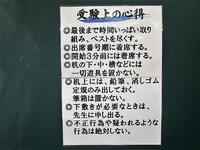 受験上の心得
◎最後まで時間いっぱい取り
組み、ベストを尽くす。
◎出席番号順に着席する。
◎開始3分前には着席する。
◎机の下・中・横などには
一切道具を置かない。
◎机上には、鉛筆、消しゴム
定規のみ出しておく。
筆箱は置かない。
◎下敷きが必要なときは、
先生に申し出る。
◎不正行為や疑われるような
行為は絶対しない。